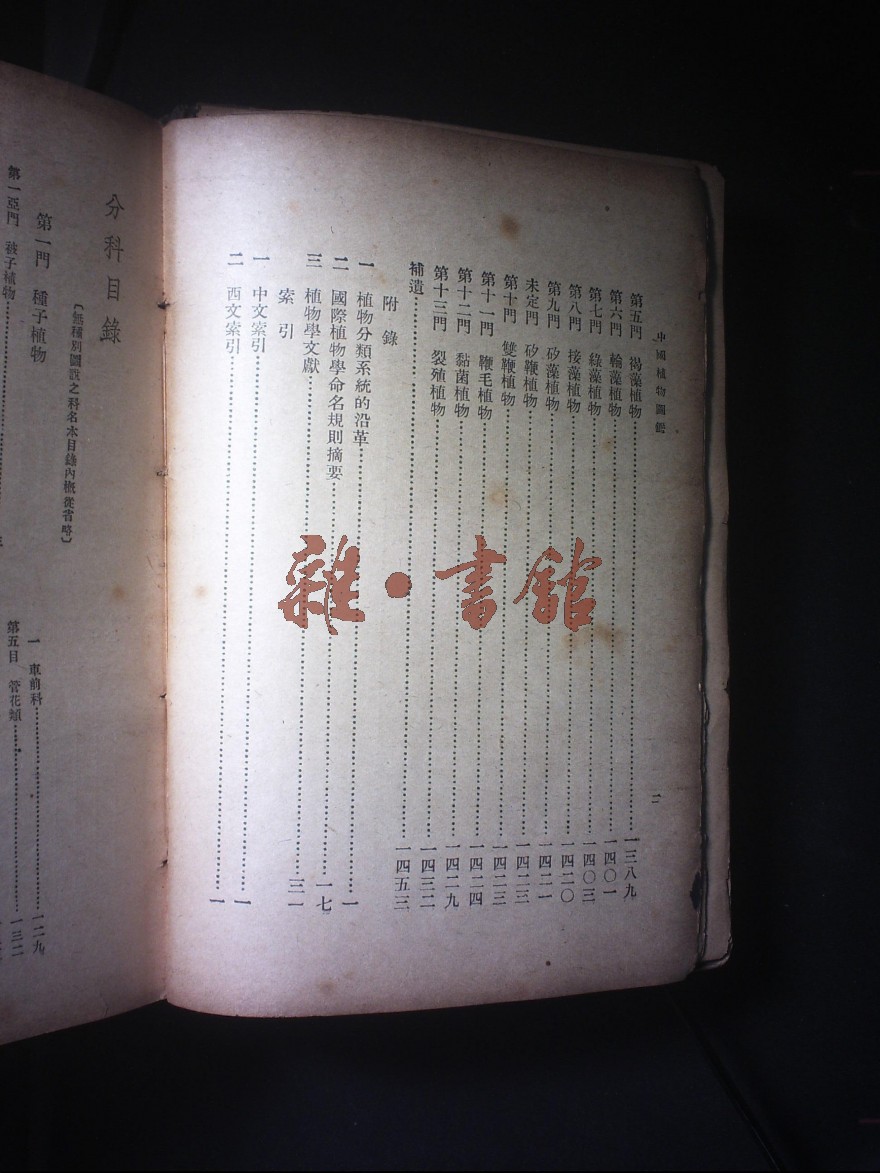 中國植物圖鑑
二
第五門 褐藻植物……一三八九
第六門 輪藻植物……一四〇一
第七門 綠藻植物……一四〇三
第八門 接藻植物……一四二〇
第九門 矽藻植物……一四二一
未定門 矽鞭植物……一四二三
第十門 雙鞭植物……一四二三
第十一門 鞭毛植物……一四二四
第十二門 黏菌植物……一四二九
第十三門 裂殖植物……一四三二
補遺……一四五三
附錄
一 植物分類系統的沿革……一
二 國際植物學命名規則摘要……一七
三 植物學文獻……三一
索引
一 中文索引……一
二 西文索引……一
分科目錄
〔無種別圖說之科名本目錄內概從省略〕
第一門 種子植物
第一亞門 被子植物……
一 車前科……一二九
第五目 管花類……一三二
雜·書館